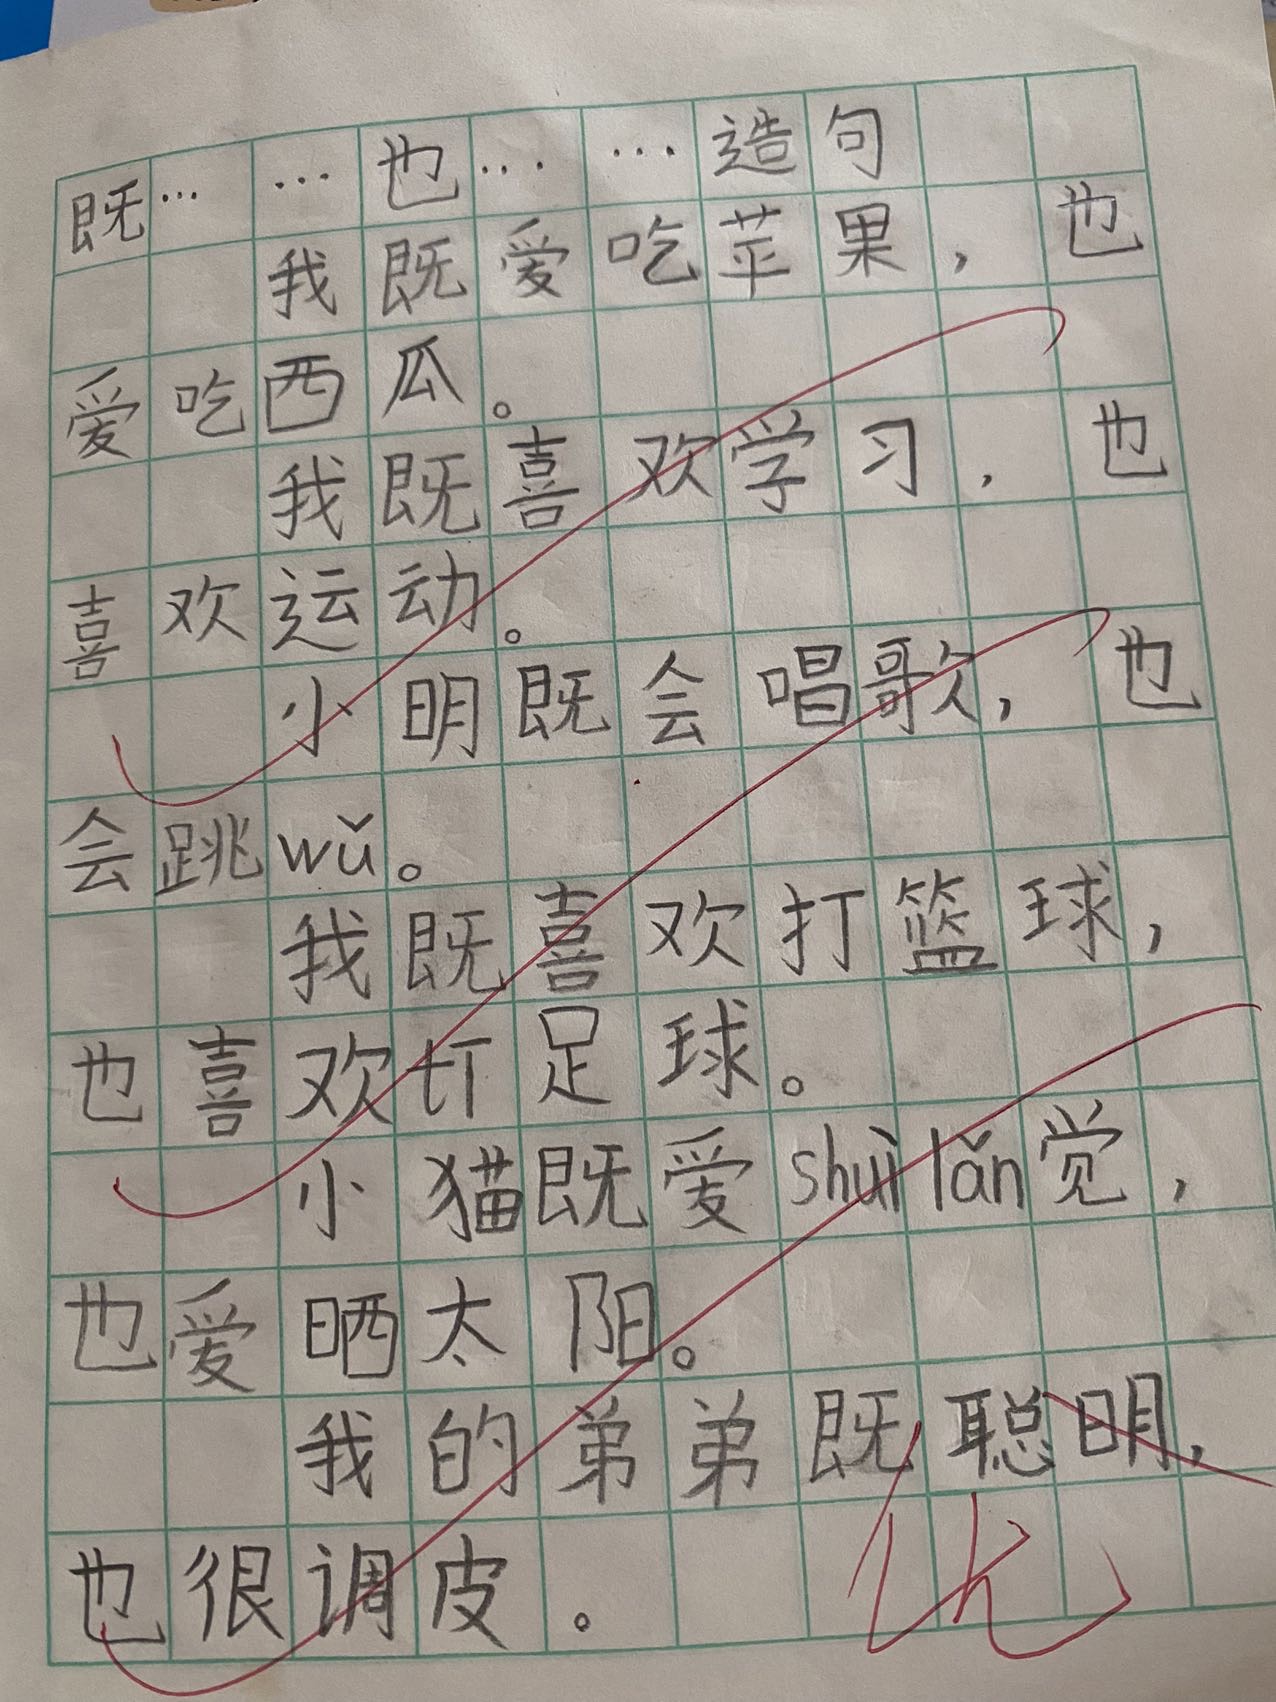 既……也……造句
我既爱吃苹果，也
爱吃西瓜。
我既喜欢学习，也
喜欢运动。
小明既会唱歌，也
会跳wǔ。
我既喜欢打篮球，
也喜欢打足球。
小猫既爱shuì lǎn觉，
也爱晒太阳。
我的弟弟既聪明，
也很调皮。
优